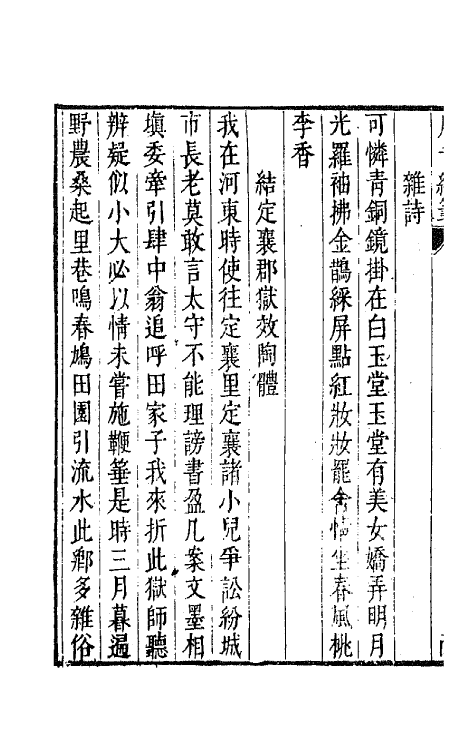 雜詩
可憐青銅鏡掛在白玉堂玉堂有美女嬌弄明月
光羅袖拂金鵲綵屏點紅妝妝罷含情坐春風桃
李香
結定襄郡獄效陶體
我在河東時使往定襄里定襄諸小兒爭訟紛城
市長老莫敢言太守不能理謗書盈几案文墨相
塡委牽引肆中翁追呼田家子我來折此獄師聽
辨疑似小大必以情未嘗施鞭箠是時三月暮遍
野農桑起里巷鳴春鳩田園引流水此鄉多雜俗